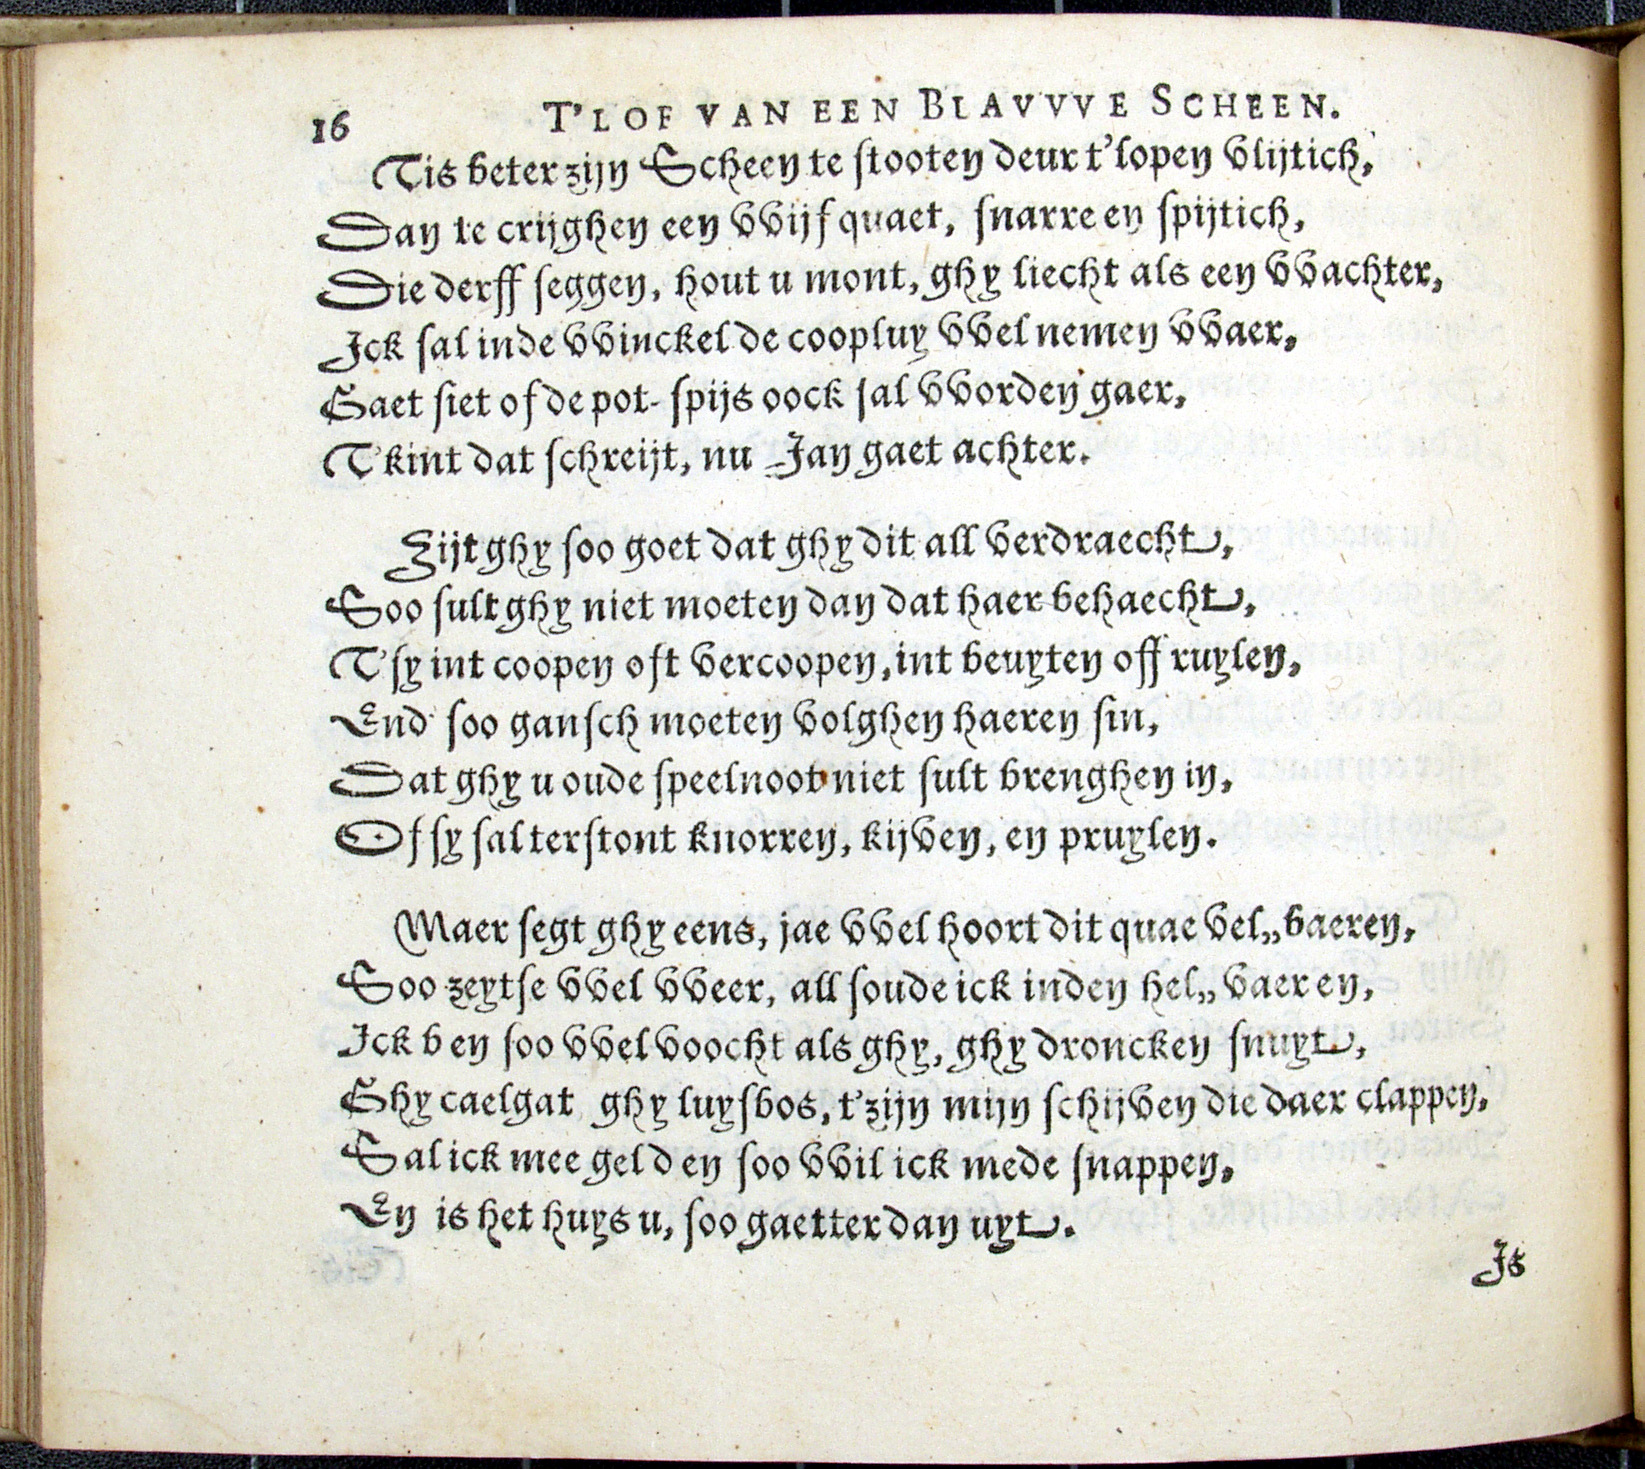 16 T'LOF VAN EEN BLAVVVE SCHEEN.
Tis beter zijn Scheen te stooten deur t'lopen vlijtich,
Dan te crijghen een vvijf quaet, snarre en spijtich,
Die derff seggen, hout u mont, ghy liecht als een vvachter,
Ick sal inde vvinckel de coopluy vvel nemen vvaer,
Gaet siet of de pot-spijs oock sal vvorden gaer,
T'kint dat schreijt, nu Jan gaet achter.
Zijt ghy soo goet dat ghy dit all verdraecht,
Soo sult ghy niet moeten dan dat haer behaecht,
T'sy int coopen oft vercoopen, int beuyten off ruylen,
End' soo gansch moeten volghen haeren sin,
Dat ghy u oude speelnoot niet sult brenghen in,
Of sy sal terstont knorren, kijven, en pruylen.
Maer segt ghy eens, jae vvel hoort dit quae vel„ baeren,
Soo zeytse vvel vveer, all soude ick inden hel„ vaeren,
Ick ben soo vvel voocht als ghy, ghy droncken snuyt,
Ghy caelgat ghy luysbos, t'zijn mijn schijven die daer clappen,
Sal ick mee gelden soo vvil ick mede snappen,
En is het huys u, soo gaetter dan uyt.
Is